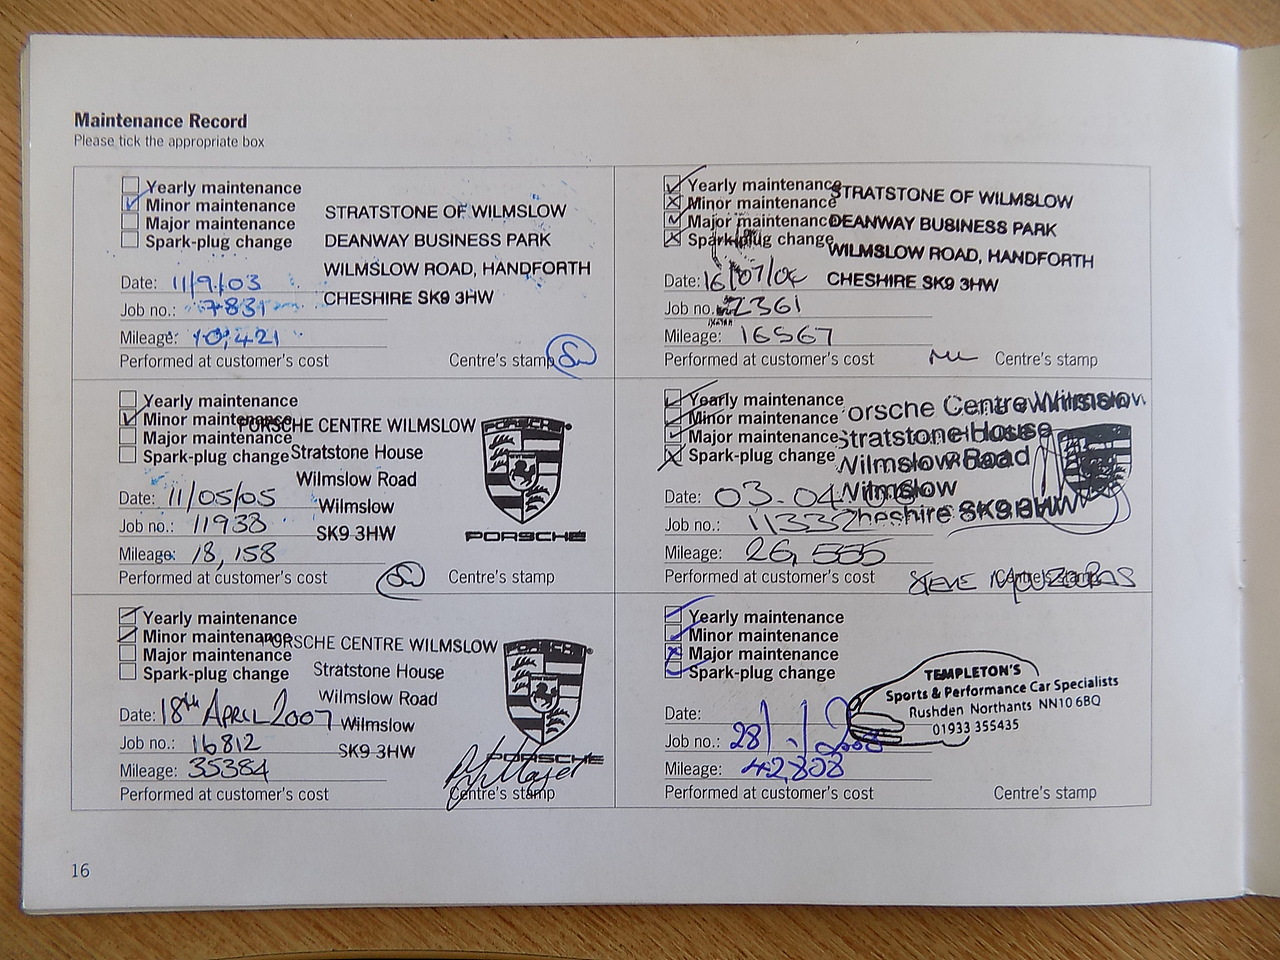 Maintenance Record
Please tick the appropriate box
Yearly maintenance
Minor maintenance
Major maintenance
Spark-plug change
STRATSTONE OF WILMSLOW
DEANWAY BUSINESS PARK
WILMSLOW ROAD, HANDFORTH
CHESHIRE SK9 3HW
Date: 11/9/03
Job no.: 7831
Mileage: 10,421
Performed at customer's cost
Centre's stamp
Yearly maintenance
Minor maintenance
Major maintenance
Spark-plug change
STRATSTONE OF WILMSLOW
DEANWAY BUSINESS PARK
WILMSLOW ROAD, HANDFORTH
CHESHIRE SK9 3HW
Date: 16/07/04
Job no. 2361
Mileage: 16567
Performed at customer's cost
Centre's stamp
Yearly maintenance
Minor maintenance
Major maintenance
Spark-plug change
PORSCHE CENTRE WILMSLOW
Stratstone House
Wilmslow Road
Wilmslow
SK9 3HW
PORSCHE
PORSCHE
Date: 11/05/05
Job no.: 11938
Mileage: 18,158
Performed at customer's cost
Centre's stamp
Yearly maintenance
Minor maintenance
Major maintenance
Spark-plug change
orsche Centre Wilmslow
Stratstone House
Wilmslow Road
Wilmslow
Cheshire SK9 3HW
Date: 03.04
Job no.: 11332
Mileage: 26,555
Performed at customer's cost
STEVE
Centre's stamp
Yearly maintenance
Minor maintenance
Major maintenance
Spark-plug change
PORSCHE CENTRE WILMSLOW
Stratstone House
Wilmslow Road
Wilmslow
SK9 3HW
PORSCHE
PORSCHE
Date: 18th APRIL 2007
Job no.: 16812
Mileage: 35384
Performed at customer's cost
Centre's stamp
Yearly maintenance
Minor maintenance
Major maintenance
Spark-plug change
TEMPLETON'S
Sports & Performance Car Specialists
Rushden Northants NN10 6BQ
01933 355435
Date:
Job no.: 28/1/2008
Mileage: 42,808
Performed at customer's cost
Centre's stamp
16